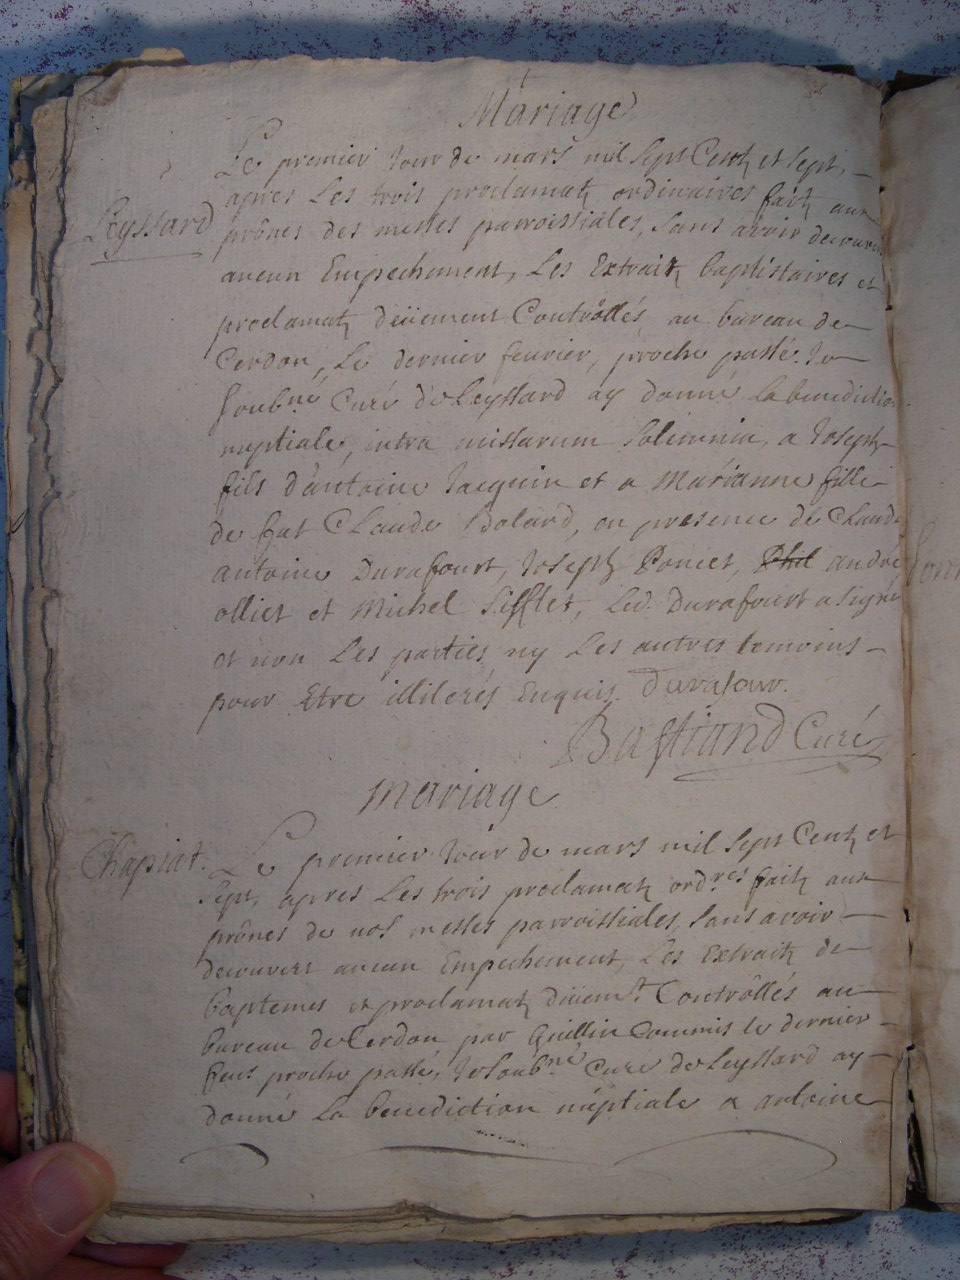 Mariage
Le premier Jour de mars mil Sept Centz et Sept,
apres Les trois proclamatz ordinaires faitz aux
Leyssard
prônes des messes parroissiales, Sans avoir decouvert
aucun Empechement, Les Extraitz baptistaires et
proclamatz düement Contrôllés au bureau de
Cerdon, Le dernier feurier, proche passé. Je
Soub.né Curé de Leyssard ay donné La benediction
nuptiale, intra missarum Solemnia, a Joseph
fils d'antoine Jacquin et a Marianne fille
de fut Claude Bolard, en presence de Claude
antoine Durafourt, Joseph Poncet, Phil andré
olliet et Michel Sifflet, Led. Durafourt a signé
et non Les parties ny Les autres temoins
pour Etre illiterés Enquis. Durafour.
Bastiand Curé
Mariage
Chapiat.
Le premier Jour de mars mil Sept Centz et
Sept, apres Les trois proclamatz ord.res faitz aux
prônes de nos messes parroissiales, Sans avoir
decouvert aucun Empechement, Les Extraitz de
baptemes et proclamatz düem.t Contrôllés au
bureau de Cerdon par Guillin Commis le dernier
feur proche passé, Je Soub.né Curé de Leyssard ay
donné La benediction nuptiale a antoine